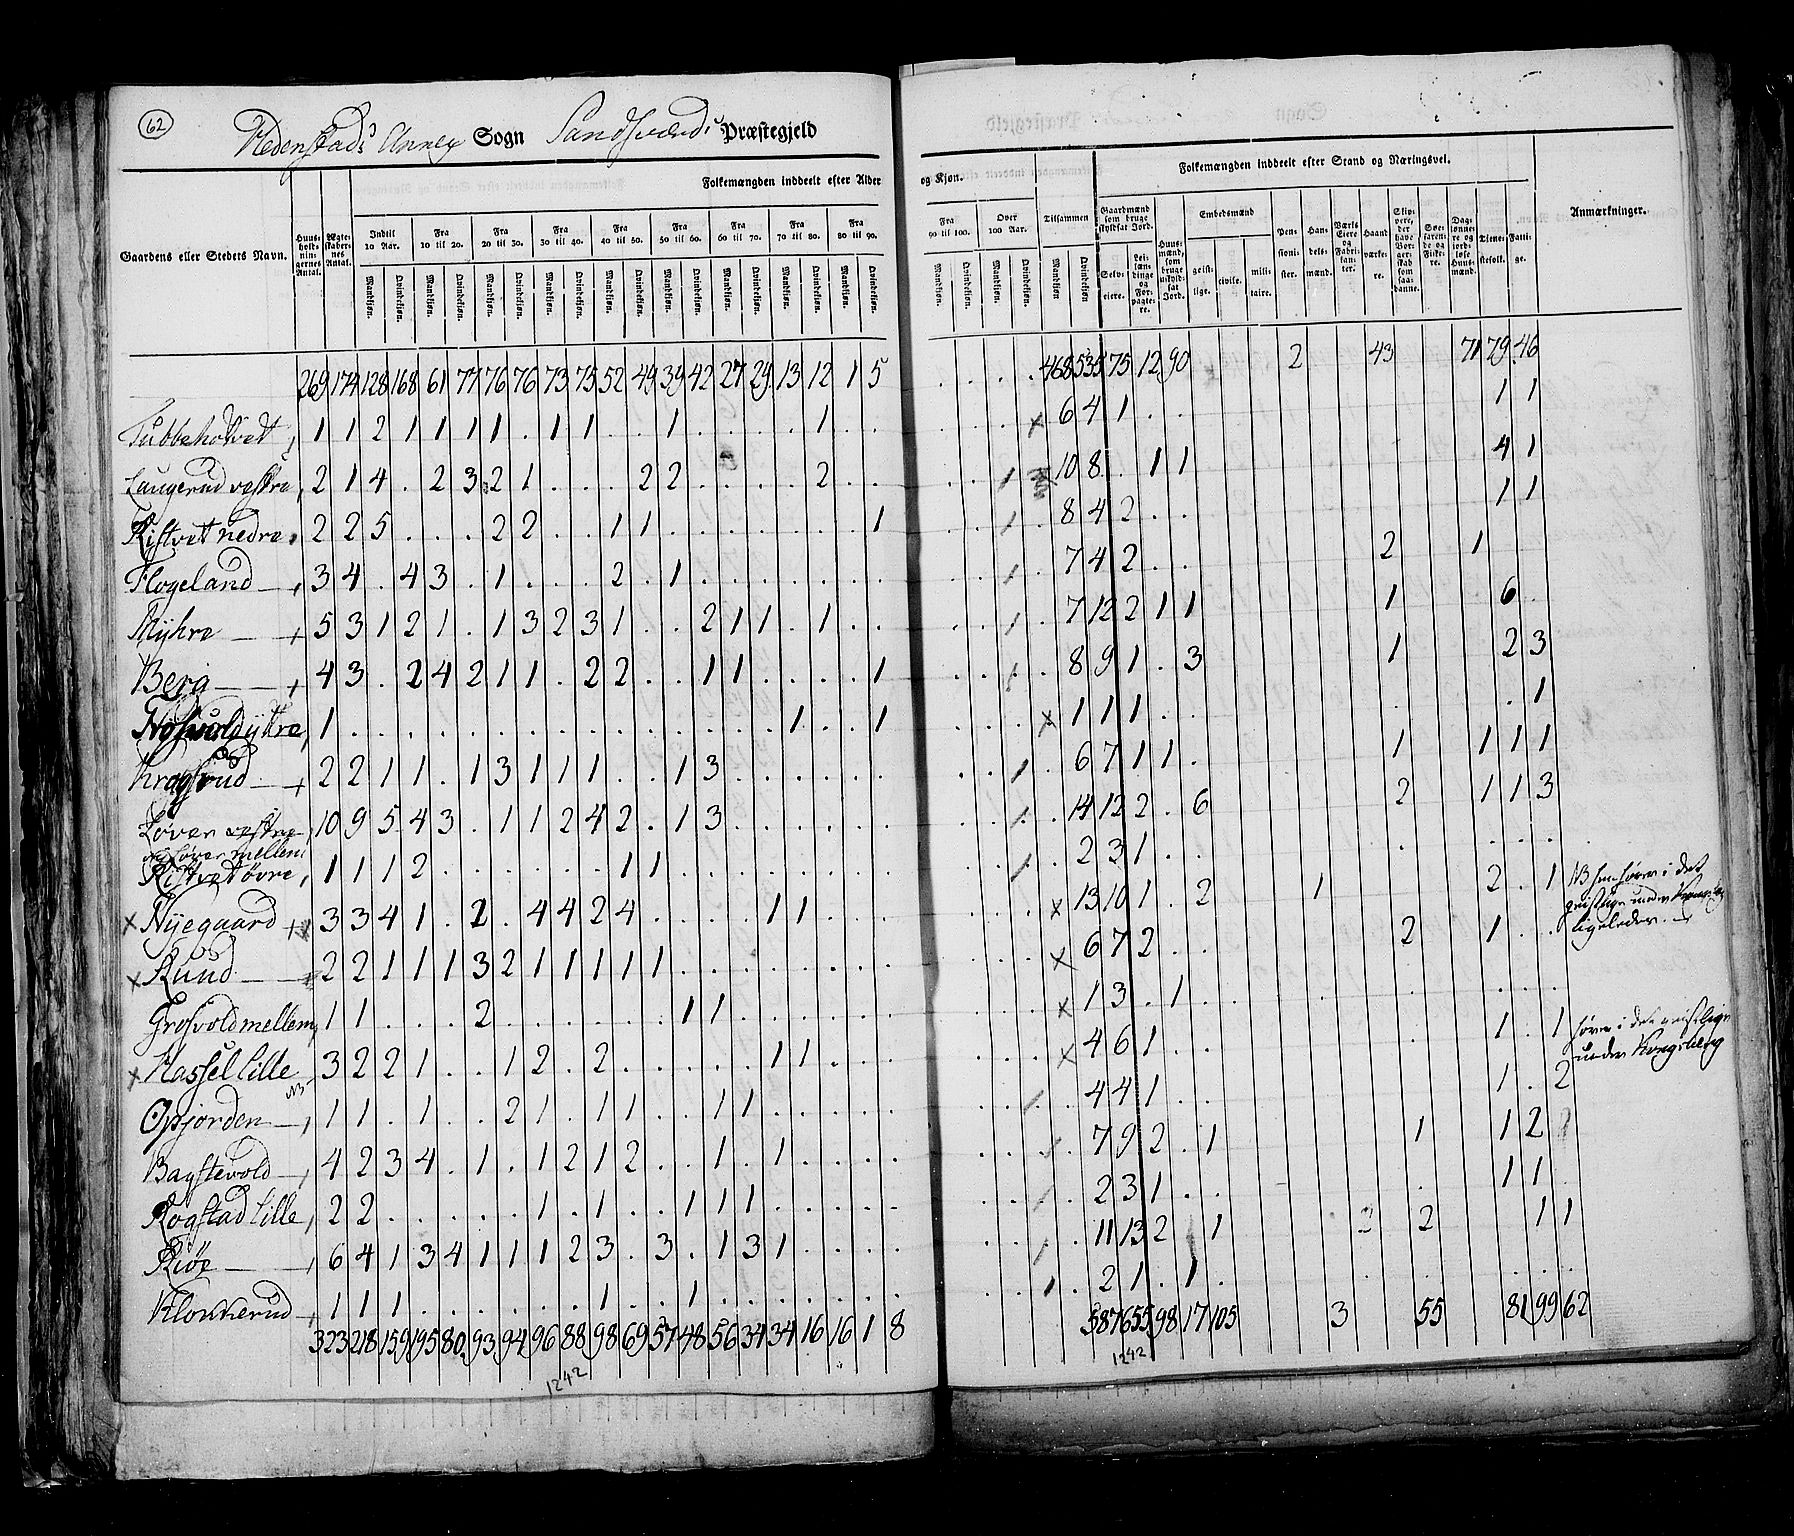 62
Hedenstads Annex Sogn Sandsværds Præstegjeld
Folkemængden inddeelt efter Alder og Kjøn.
Folkemængden inddeelt efter Stand og Næringsvei.
Gaardens eller Stedets Navn.
Huusholdningernes Antal.
Ægteskabernes Antal.
Indtil 10 Aar.
Fra 10 til 20.
Fra 20 til 30.
Fra 30 til 40.
Fra 40 til 50.
Fra 50 til 60.
Fra 60 til 70.
Fra 70 til 80.
Fra 80 til 90.
Fra 90 til 100.
Over 100 Aar.
Tilsammen
Mandkjøn. Qvindekjøn.
Gaardmænd som bruge skyldsat Jord.
Selveiere.
Leilændinge og Forpagtere.
Huusmænd, som bruge uskyldsat Jord.
Embedsmænd
geistlige. civile. militaire.
Pensionister.
Handelsmænd.
Værks Eiere og Fabrikanter.
Haandværkere.
Skippere, der have Borgerskab som saadanne.
Søefarende og Fiskere.
Daglønnere og jordløse Huusmænd.
Tjenestefolk.
Fattige.
Anmærkninger.
269 174 128 168 61 77 76 76 73 75 52 49 39 42 27 29 13 12 1 5 . . . . 468 535 75 12 90 2 43 71 79 46
Tubbeholvedt 1 1 2 1 1 1 1 . 1 1 . . 1 . . . . 1 . . x 6 4 1 . . 1 1
Laugerud vestre 2 1 4 . 2 3 2 1 . . . 2 2 . . . . 2 . . 10 8 . 1 1 4 1
Kistvet nedre 2 2 5 . . . 2 2 . . 1 1 . . . . . . . 1 8 4 2 . . 1 1
Flogeland 3 4 . 4 3 . 1 . . . 2 . 1 . . . . . . . 7 4 2 . . 2 1
Myhre 5 3 1 2 1 . 1 3 2 3 1 . . 2 1 1 . 1 . . 7 12 2 1 1 1 6 .
Berg 4 3 . 2 4 2 1 1 . 2 2 . . 1 1 . . . . 1 8 9 1 . 3 1 2 3
1 . . . . . . . . . . . . . . . 1 . . 1 x 1 1 1 . . . 1
2 2 1 1 . 1 3 1 1 1 . . 1 3 . . . . . . 6 7 1 1 . 1 1 1 1
Løver vestre og Løver mellem 10 9 5 4 3 . 1 1 2 4 2 . 1 3 . . . . . . 14 12 2 . 6 2 1 1 3
Kistvet øvre 1 1 1 2 . . . . . . 1 1 . . . . . . . . 2 3 1 . . . . .
x Nyegaard 3 3 4 1 . 2 . 4 4 2 4 . . . . 1 1 . . . x 13 10 1 . 2 1 2 . 1
x Ruud 2 2 1 1 1 3 2 1 1 1 1 1 . . . . . . . . x 6 7 2 . . 2 1 . .
Grosvold mellem 1 1 . . . 2 . . . . . . 1 1 . . . . . . x 1 3 . 1 . . . .
x Hassel lille 3 2 2 1 . . 1 2 . 2 . . . . . 1 1 . . . x 4 6 1 . . 1 . 1
NB
Opjorden 1 1 . 1 . . 2 1 . 1 1 . . 1 1 . . . . . 4 4 1 . . 1 . 2
Bagstevold 4 2 3 4 . 1 . 1 2 1 2 . . 1 . 1 . . . . 7 9 2 . 1 1 1 2
Rogstad lille 2 2 . . . . . 1 . 1 . . 1 1 1 . . . . . 2 3 1 . . 1 1 .
Kiøe 6 4 1 3 4 1 1 1 2 3 . 3 . 1 3 1 . . . . 11 13 2 . 1 2 1 1
Klokkerud 1 1 1 . . . . . . 1 . . 1 . . . . . . . 2 1 . 1 . . . .
323 218 159 195 80 93 94 96 88 98 69 57 48 56 34 34 16 16 1 8 587 655 98 17 105 3 55 81 99 62
1242
1242
i det geistlige under
ligeledes.
hører i det geistlige
under Kongsberg